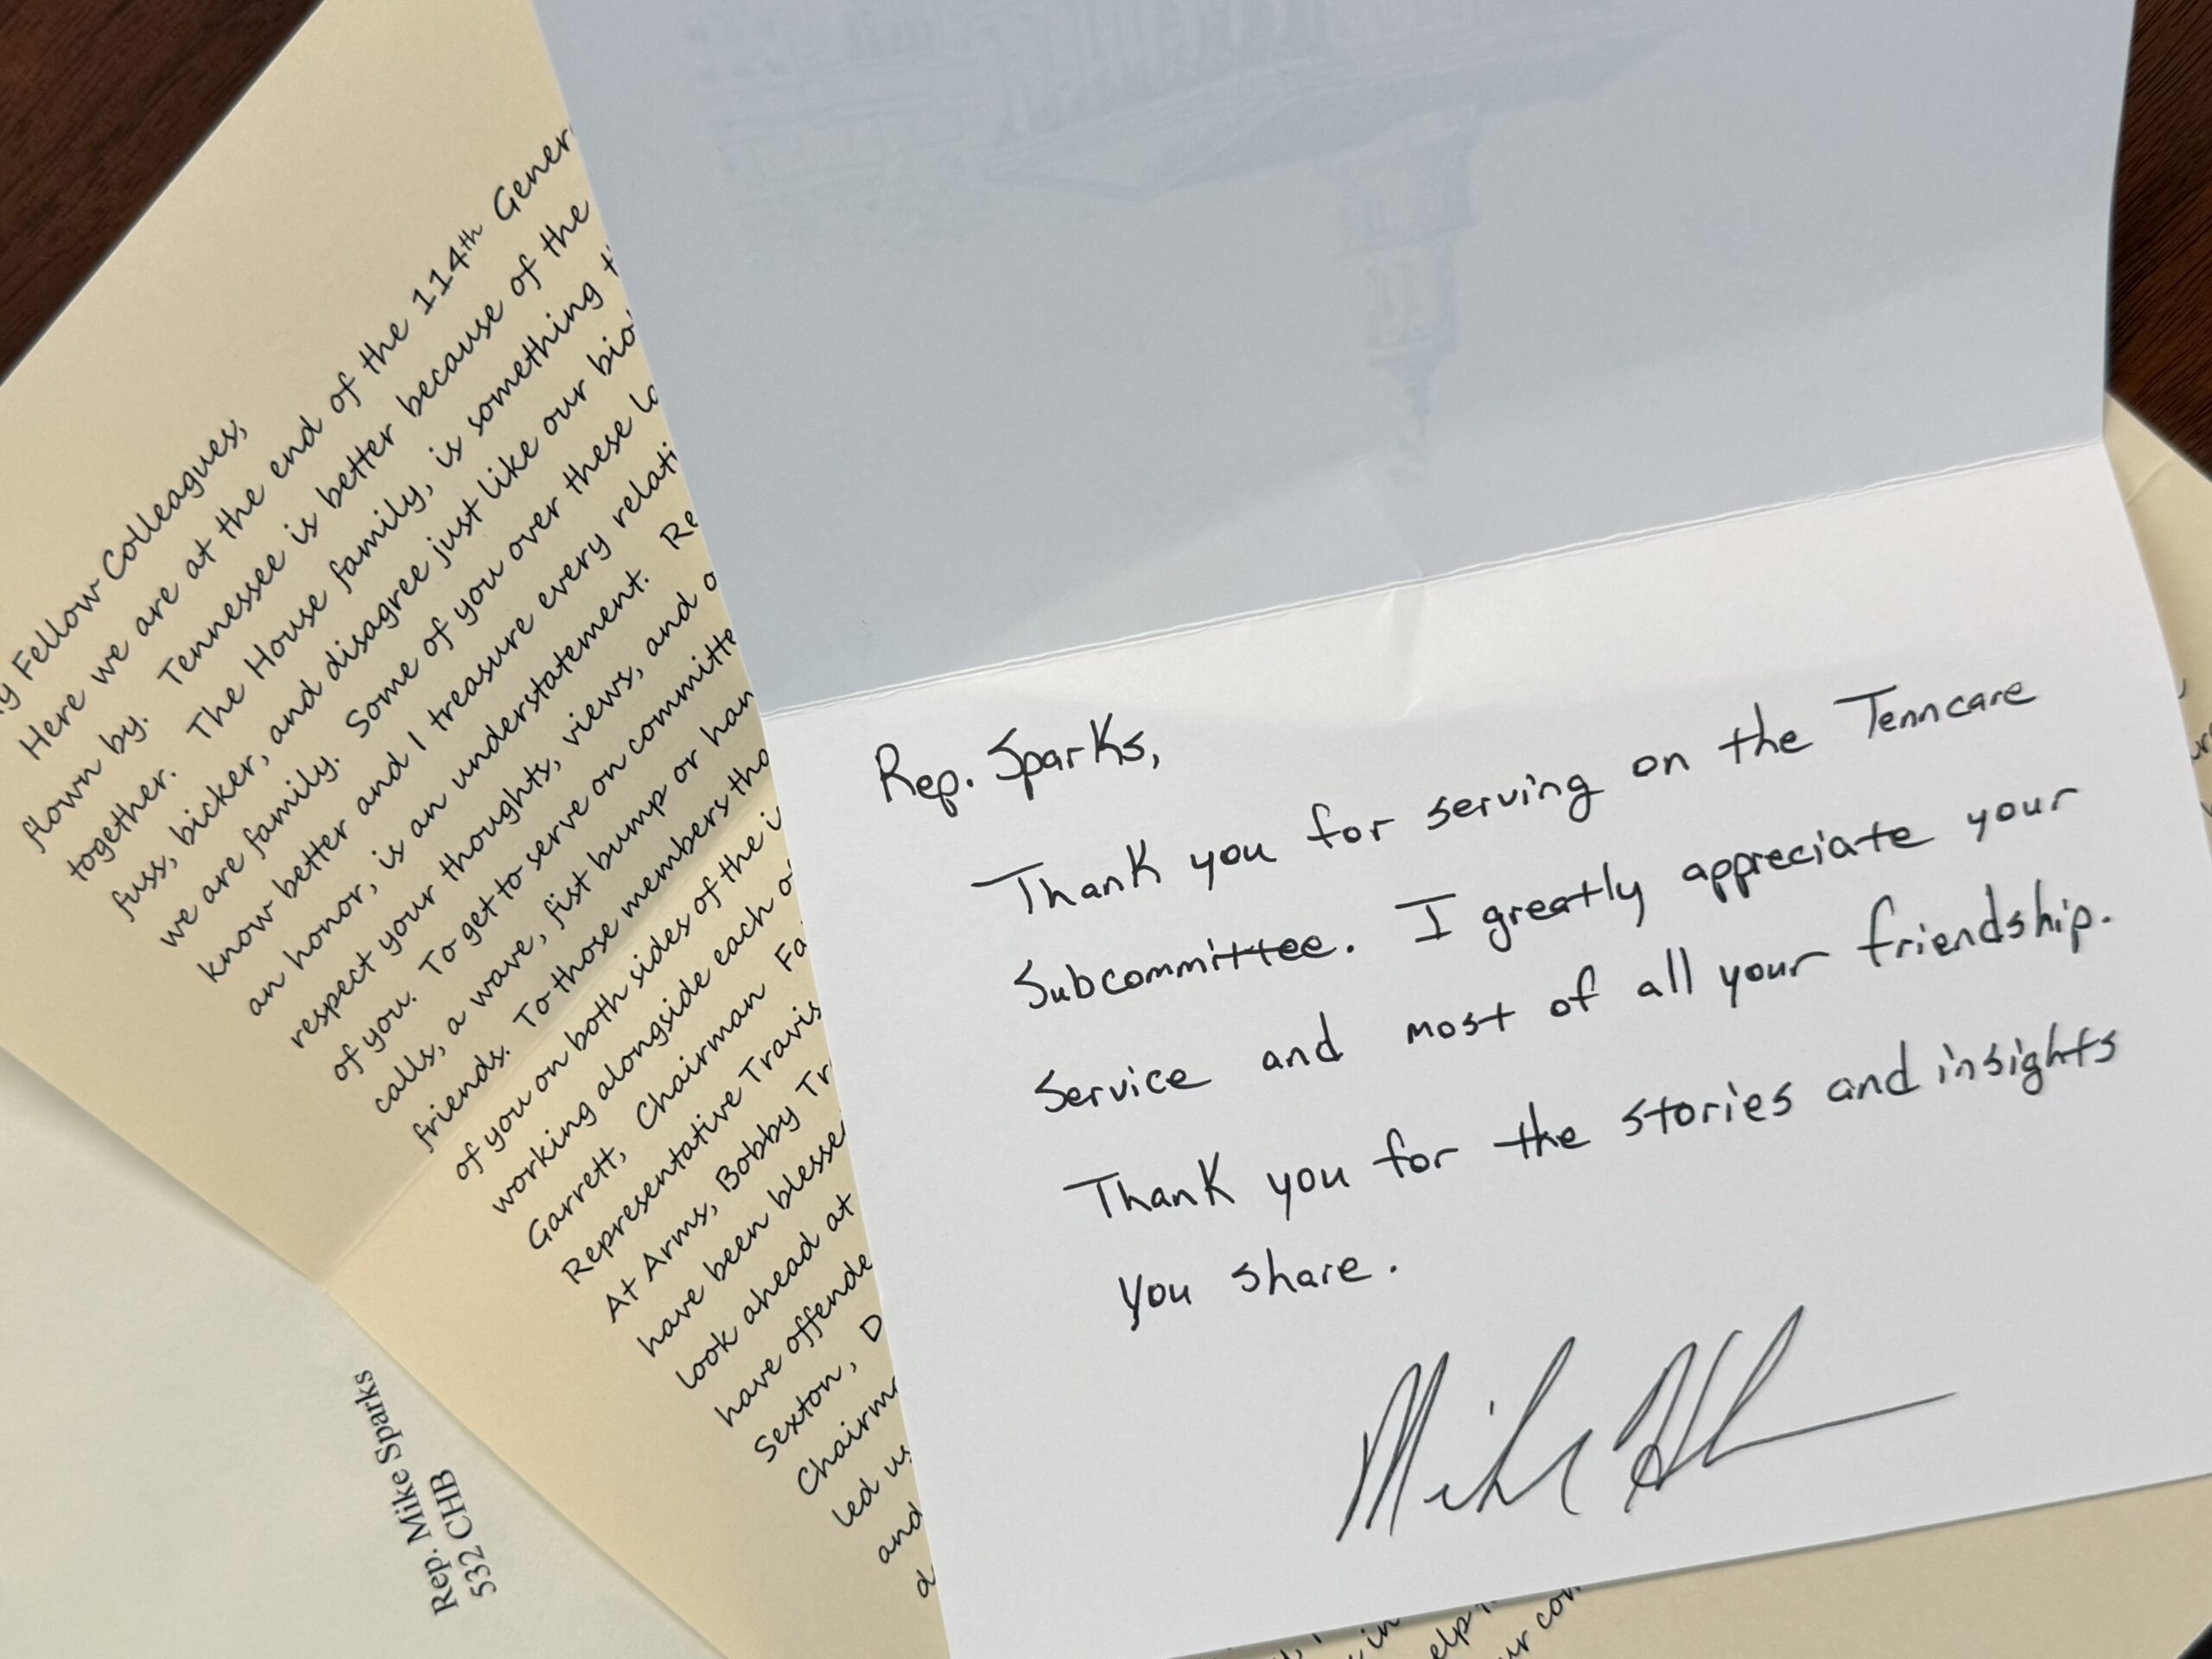 My Fellow Colleagues,
Here we are at the end of the 114th
flown by. Tennessee is better because of the
together. The House family, is something
fuss, bicker, and disagree just like our
we are family. Some of you over these
know better and I treasure every
an honor, is an understatement.
respect your thoughts, views, and
of you. To get to serve on
calls, a wave, fist bump or
friends. To those members
of you on both sides of the
working alongside each
Garrett, Chairman
Representative Travis
At Arms, Bobby
have been
look ahead at
have
Sexton,
led
and
Rep. Sparks,
Thank you for serving on the Tenncare
Subcommittee. I greatly appreciate your
Service and most of all your friendship.
Thank you for the stories and insights
you share.
Rep. Mike Sparks
532 CHB